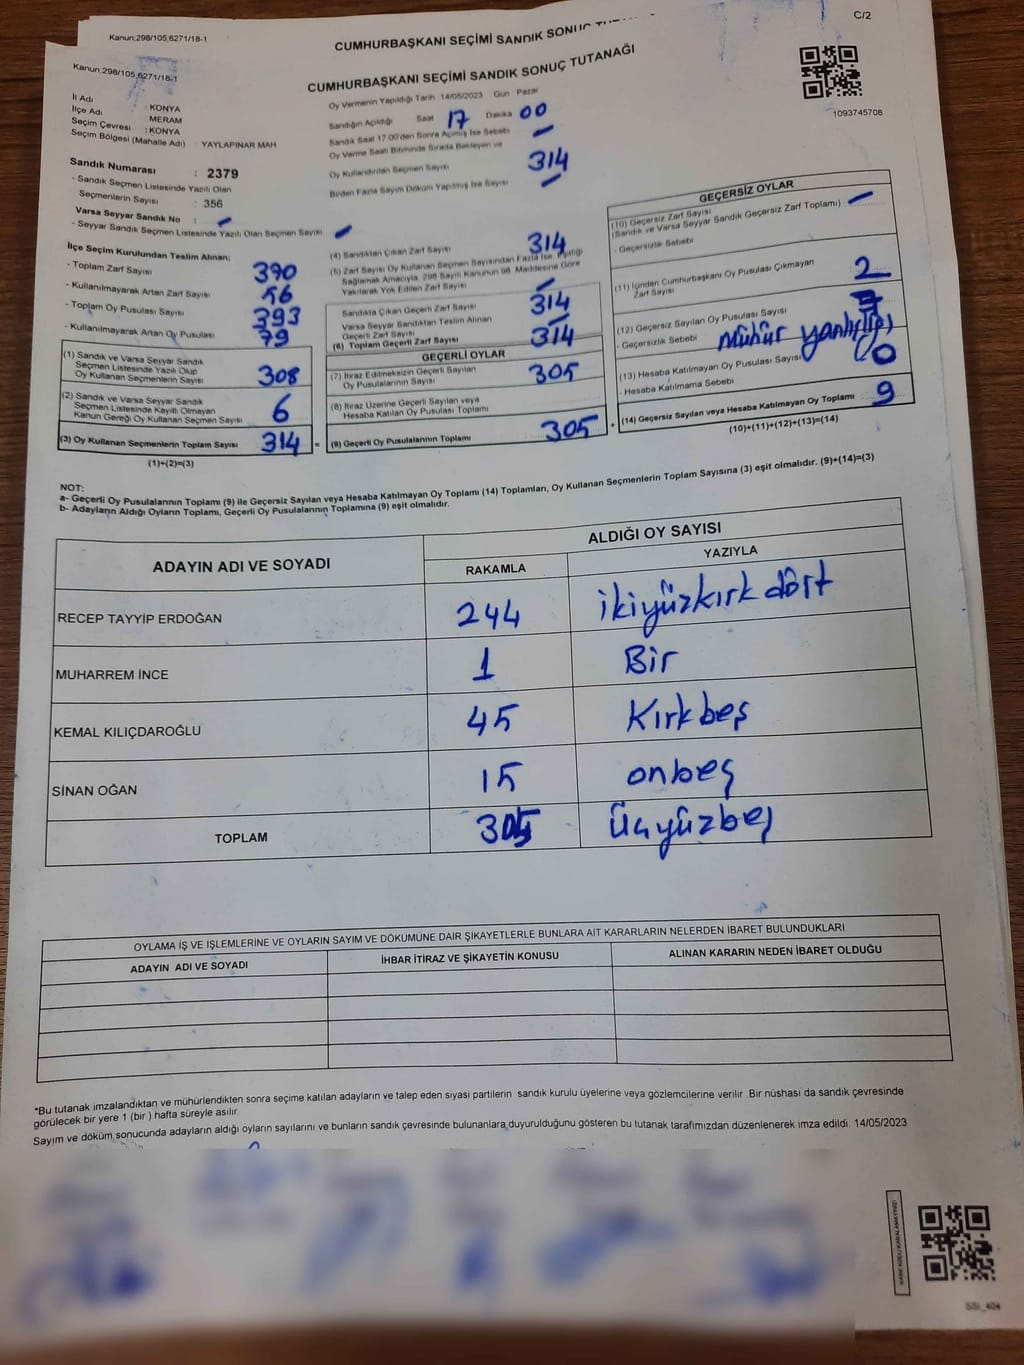 Kanun:298/105,6271/18-1
CUMHURBAŞKANI SEÇİMİ SANDIK
C/2
Kanun:298/105,6271/18-1
CUMHURBAŞKANI SEÇİMİ SANDIK SONUÇ TUTANAĞI
1093745708
İl Adı : KONYA
İlçe Adı : MERAM
Seçim Çevresi : KONYA
Seçim Bölgesi (Mahalle Adı) YAYLAPINAR MAH
Oy Vermenin Yapıldığı Tarih :14/05/2023 Gün Pazar
Sandığın Açıldığı Saat 17 Dakika 00
Sandık Saat 17.00'den Sonra Açılmış İse Sebebi –
Oy Verme Saati Bitiminde Sırada Bekleyen ve
Oy Kullandırılan Seçmen Sayısı 314
Birden Fazla Sayım Döküm Yapılmış İse Sayısı –
Sandık Numarası : 2379
- Sandık Seçmen Listesinde Yazılı Olan
Seçmenlerin Sayısı : 356
Varsa Seyyar Sandık No : –
- Seyyar Sandık Seçmen Listesinde Yazılı Olan Seçmen Sayısı –
İlçe Seçim Kurulundan Teslim Alınan;
- Toplam Zarf Sayısı 390
- Kullanılmayarak Artan Zarf Sayısı 56
- Toplam Oy Pusulası Sayısı 393
- Kullanılmayarak Artan Oy Pusulası 79
(1) Sandık ve Varsa Seyyar Sandık
Seçmen Listesinde Yazılı Olup
Oy Kullanan Seçmenlerin Sayısı 308
(2) Sandık ve Varsa Seyyar Sandık
Seçmen Listesinde Kayıtlı Olmayan
Kanun Gereği Oy Kullanan Seçmen Sayısı 6
(3) Oy Kullanan Seçmenlerin Toplam Sayısı 314 =
(1)+(2)=(3)
(4) Sandıktan Çıkan Zarf Sayısı 314
(5) Zarf Sayısı Oy Kullanan Seçmen Sayısından Fazla İse, Eşitliği
Sağlamak Amacıyla, 298 Sayılı Kanunun 98. Maddesine Göre
Yakılarak Yok Edilen Zarf Sayısı –
Sandıkta Çıkan Geçerli Zarf Sayısı 314
Varsa Seyyar Sandıktan Teslim Alınan
Geçerli Zarf Sayısı –
(6) Toplam Geçerli Zarf Sayısı 314
GEÇERLİ OYLAR
(7) İtiraz Edilmeksizin Geçerli Sayılan
Oy Pusulalarının Sayısı 305
(8) İtiraz Üzerine Geçerli Sayılan veya
Hesaba Katılan Oy Pusulası Toplamı
(9) Geçerli Oy Pusulalarının Toplamı 305 +
GEÇERSİZ OYLAR
(10) Geçersiz Zarf Sayısı
(Sandık ve Varsa Seyyar Sandık Geçersiz Zarf Toplamı) –
- Geçersizlik Sebebi
(11) İçinden Cumhurbaşkanı Oy Pusulası Çıkmayan
Zarf Sayısı 2
(12) Geçersiz Sayılan Oy Pusulası Sayısı
- Geçersizlik Sebebi Mühür yanlışlığı
(13) Hesaba Katılmayan Oy Pusulası Sayısı 0
- Hesaba Katılmama Sebebi
(14) Geçersiz Sayılan veya Hesaba Katılmayan Oy Toplamı 9
(10)+(11)+(12)+(13)=(14)
NOT:
a- Geçerli Oy Pusulalarının Toplamı (9) ile Geçersiz Sayılan veya Hesaba Katılmayan Oy Toplamı (14) Toplamları, Oy Kullanan Seçmenlerin Toplam Sayısına (3) eşit olmalıdır. (9)+(14)=(3)
b- Adayların Aldığı Oyların Toplamı, Geçerli Oy Pusulalarının Toplamına (9) eşit olmalıdır.
ADAYIN ADI VE SOYADI
ALDIĞI OY SAYISI
RAKAMLA YAZIYLA
RECEP TAYYİP ERDOĞAN 244 ikiyüzkırk dört
MUHARREM İNCE 1 Bir
KEMAL KILIÇDAROĞLU 45 Kırkbeş
SİNAN OĞAN 15 onbeş
TOPLAM 305 Üçyüzbeş
OYLAMA İŞ VE İŞLEMLERİNE VE OYLARIN SAYIM VE DÖKÜMÜNE DAİR ŞİKAYETLERLE BUNLARA AİT KARARLARIN NELERDEN İBARET BULUNDUKLARI
ADAYIN ADI VE SOYADI İHBAR İTİRAZ VE ŞİKAYETİN KONUSU ALINAN KARARIN NEDEN İBARET OLDUĞU
*Bu tutanak imzalandıktan ve mühürlendikten sonra seçime katılan adayların ve talep eden siyasi partilerin sandık kurulu üyelerine veya gözlemcilerine verilir .Bir nüshası da sandık çevresinde
görülecek bir yere 1 (bir ) hafta süreyle asılır.
Sayım ve döküm sonucunda adayların aldığı oyların sayılarını ve bunların sandık çevresinde bulunanlara duyurulduğunu gösteren bu tutanak tarafımızdan düzenlenerek imza edildi. 14/05/2023
KARE KODU KARALAMAYINIZ!
SSİ_404